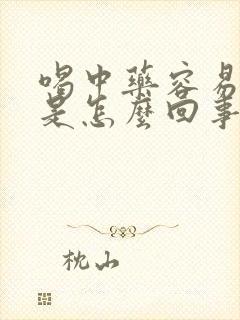 喝中藥容易
是怎麼回事
枕山